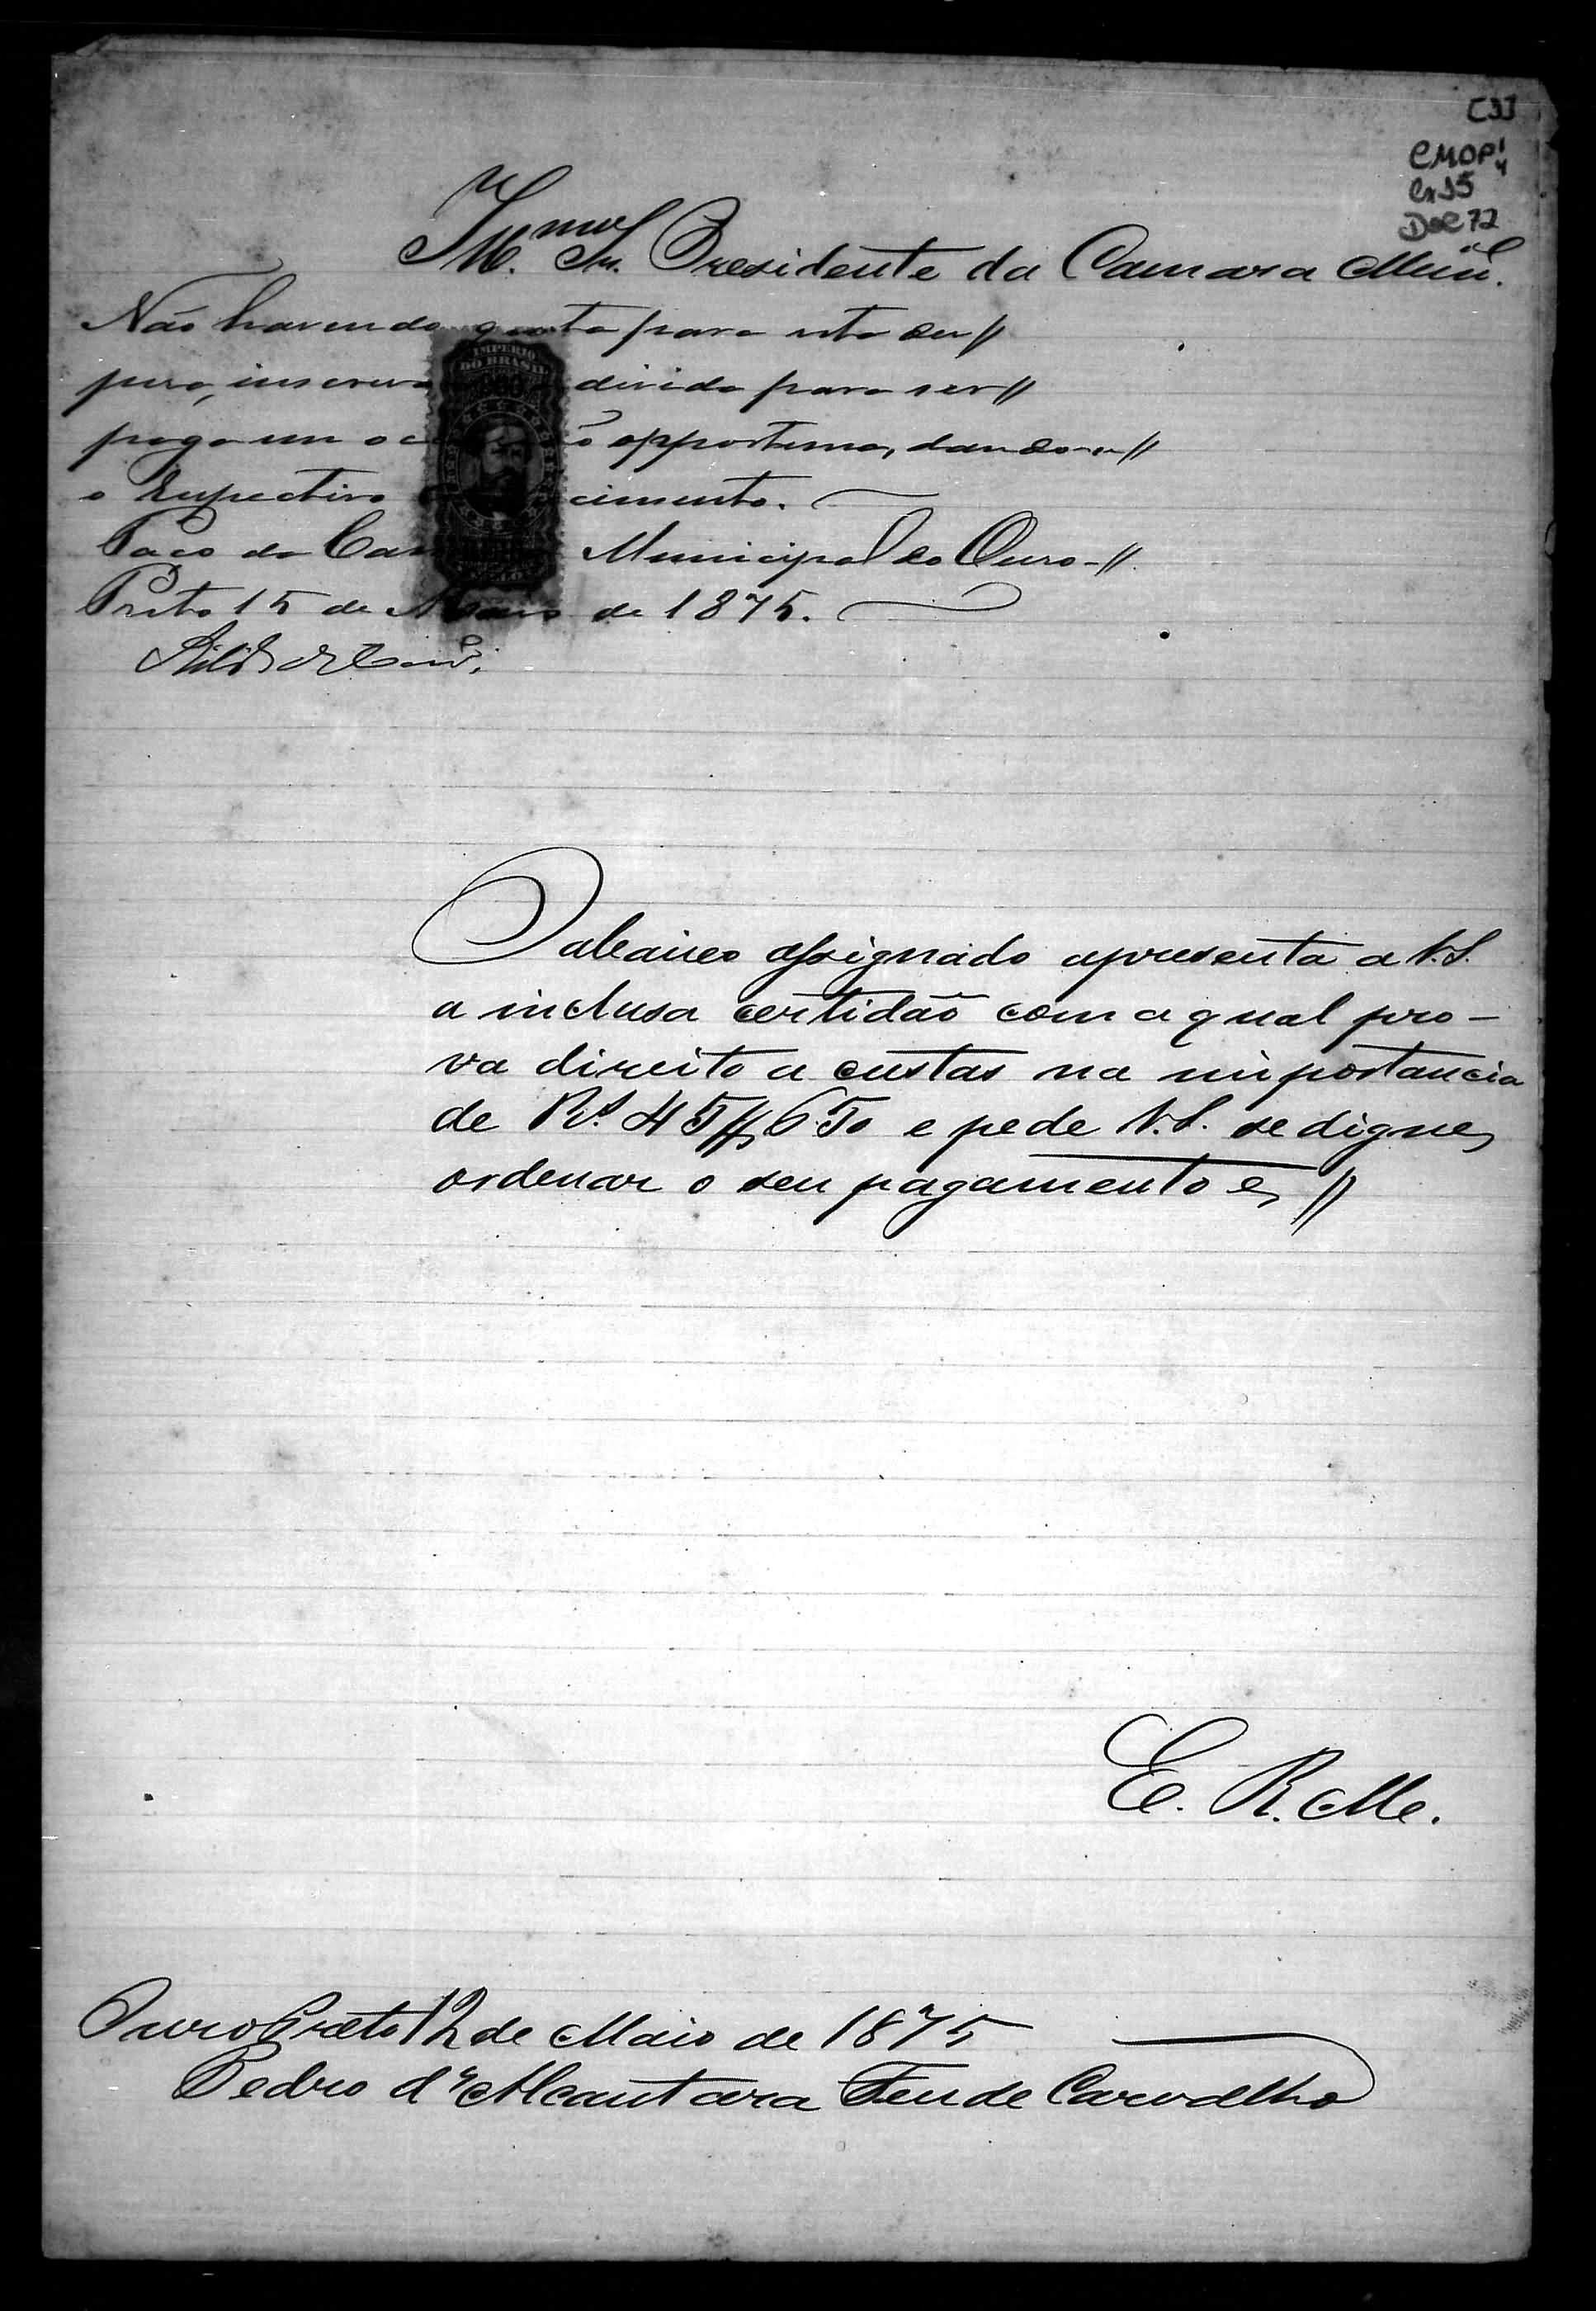 C33
CMOP 1/4
Cx 35
Doc 72
Ill.mo Sr. Presidente da Camara Mun.al
Não havendo quota para esta des//
peza, inscreva divida para ser//
paga em occ ão opportuna, dando-se//
o respectivo cimento.
Paço da Cam Municipal do Ouro-//
Preto 15 de Maio de 1875.
IMPERIO
DO BRASIL
O abaixo assignado apresenta a V.S.
a inclusa certidão com a qual pro-
va direito a custas na importancia
de Rs. 45$650 e pede V.S. se digne
ordenar o seu pagamento e //
E. R. Me.
Ouro Preto 12 de Maio de 1875
Pedro d'Alcantara Feu de Carvalho